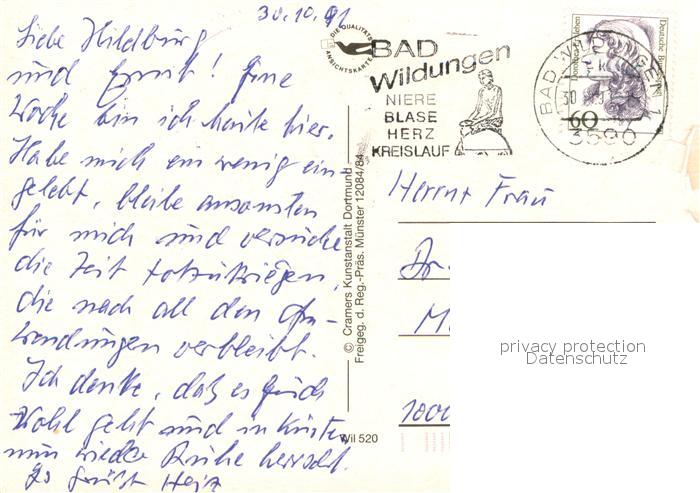 30.10.91
Liebe Hildburg
und Ernst! Eine
Woche bin ich heute hier.
Habe mich ein wenig ein-
gelebt, bleibe ansonsten
für mich und versuche
die Zeit totzukriegen,
die nach all den An-
wendungen verbleibt.
Ich denke, daß es Euch
wohl geht und in
nun wieder Ruhe herrscht.
Es grüßt Heinz
DIE QUALITÄTS
ANSICHTSKARTE
BAD
Wildungen
NIERE
BLASE
HERZ
KREISLAUF
BAD WILDUNGEN
30
3590
Deutsche Bundespost
60
© Cramers Kunstanstalt Dortmund
Freigeg. d. Reg.-Präs. Münster 12084/84
Wil 520
Herrn + Frau
Dr.
M
privacy protection
Datenschutz